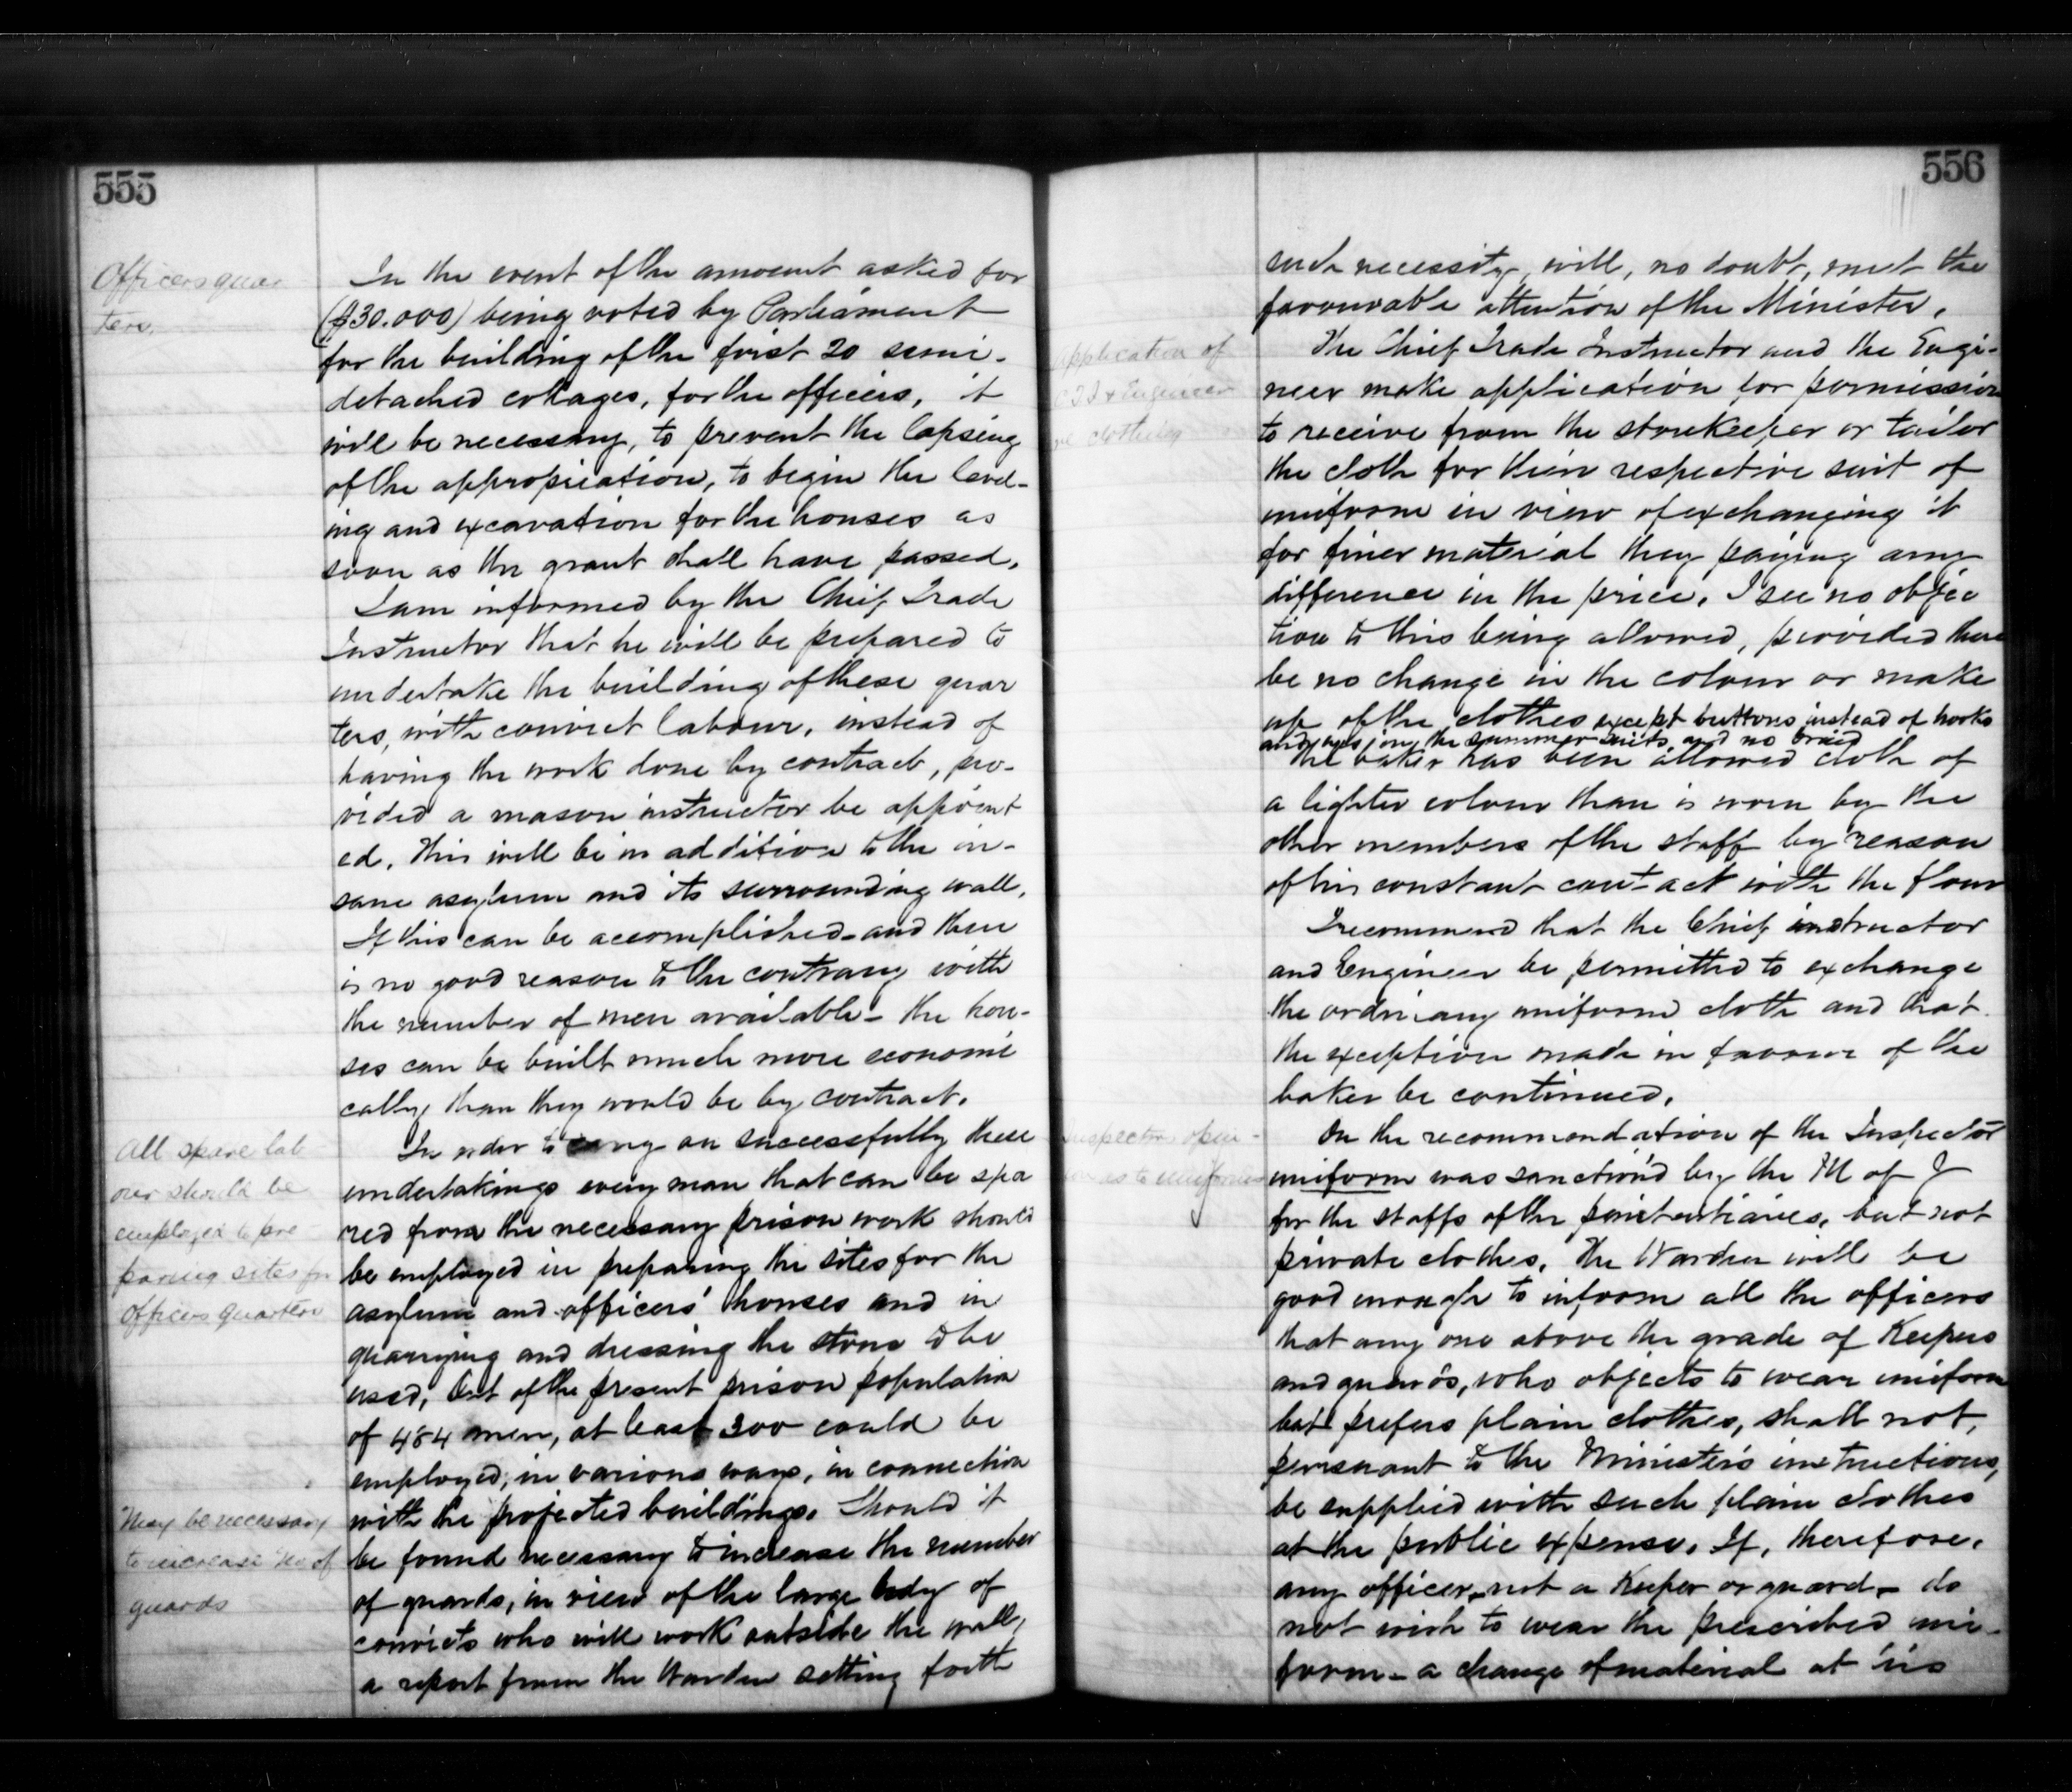 555
Officers quar
ters.
In the event of the amount asked for
($30.000) being voted by Parliament
for the building of the first 20 semi-
detached cottages, for the officers, it
will be necessary, to prevent the lapsing
of the appropriation, to begin the level-
ing and excavation for the houses as
soon as the grant shall have passed.
I am informed by the Chief Trade
Instructor that he will be prepared to
undertake the building of these quar
ters, with convict labour, instead of
having the work done by contract, pro-
vided a mason instructor be appoint
ed. This will be in addition to the in-
sane asylum and its surrounding wall.
If this can be accomplished - and there
is no good reason to the contrary with
the number of men available - the hou-
ses can be built much more economi
cally, than they would be by contract.
All spare lab
our should be
employed to pre-
paring sites for
officers quarters
In order to carry on successfully these
undertakings every man that can be spa
red from the necessary prison work should
be employed in preparing the sites for the
asylum and officers' houses and in
quarrying and dressing the stone to be
used. Out of the present prison population
of 484 men, at least 300 could be
employed, in various ways, in connection
with the projected buildings. Should it
May be necessary
to increase No of
guards
be found necessary to increase the number
of guards, in view of the large body of
convicts who will work outside the wall,
a report from the Warden setting forth
556
such necessity, will, no doubt, meet the
favourable attention of the Minister.
application of
C T I & Engineer
re clothing
The Chief Trade Instructor and the Engi-
neer make application for permission
to receive from the storekeeper or tailor
the cloth for their respective suit of
uniform in view of exchanging it
for finer material they paying any
difference in the price. I see no objec
tion to this being allowed, provided there
be no change in the colour or make
up of the clothes except buttons instead of hooks
and eyes on the summer suits, and no braid
The baker has been allowed cloth of
a lighter colour than is worn by the
other members of the staff by reason
of his constant contact with the flour
I recommend that the Chief instructor
and Engineer be permitted to exchange
the ordinary uniform cloth and that
the exception made in favour of the
baker be continued.
Inspector opin-
ion as to uniforms
On the recommendation of the Inspector
uniform was sanction'd by the M of J
for the staffs of the penitentiaries, but not
private clothes. The Warden will be
good enough to inform all the officers
that any one above the grade of Keepers
and guards, who objects to wear uniform
but prefers plain clothes, shall not,
pursuant to the Minister's instructions,
be supplied with such plain clothes
at the public expense. If, therefore,
any officer, not a Keeper or guard - do
not wish to wear the prescribed uni-
form - a change of material at his